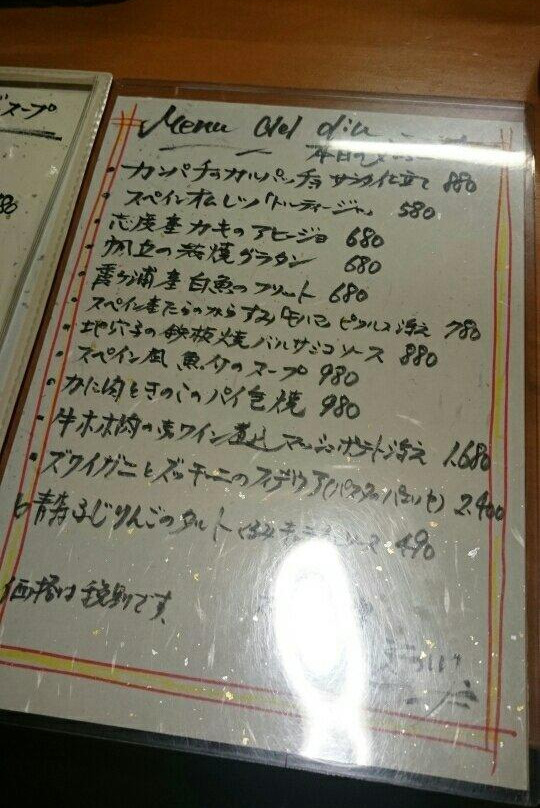 スープ
80
Menu del dia
本日のメニュー
・カンパチのカルパッチョ サラダ仕立て 880
・スペインオムレツ「トルティージャ」 580
・志度産カキのアヒージョ 680
・帆立の 焼グラタン 680
・霞ヶ浦産白魚のフリット 680
・スペイン産たらのからすみ「モハマ」ピクルス添え 780
・地穴子の鉄板焼バルサミコソース 880
・スペイン風 魚介のスープ 980
・かに肉ときのこのパイ包焼 980
・牛ホホ肉の赤ワイン煮込 マッシュポテト添え 1.680
・ズワイガニとズッキーニのフィデウア(パスタのパエリャ) 2.400
青森ふじりんごのタルト ソース 490
価格は税別です。